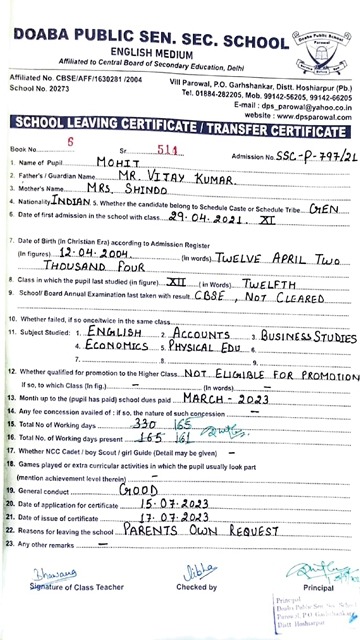 DOABA PUBLIC SEN. SEC. SCHOOL
ENGLISH MEDIUM
Affiliated to Central Board of Secondary Education, Delhi
Doaba Public School
Parowal
Affiliated No. CBSE/AFF/1630281 /2004
School No. 20273
Vill Parowal, P.O. Garhshankar, Distt. Hoshiarpur (Pb.)
Tel. 01884-282205, Mob. 99142-56205, 99142-66205
E-mail : dps_parowal@yahoo.co.in
website : www.dpsparowal.com
SCHOOL LEAVING CERTIFICATE / TRANSFER CERTIFICATE
Book No 6 Sr 514 Admission No. SSC-P-797/21
1. Name of Pupil MOHIT
2. Father's / Guardian Name MR. VIJAY KUMAR.
3. Mother's Name MRS. SHINDO
4. Nationality INDIAN 5. Whether the candidate belong to Schedule Caste or Schedule Tribe GEN
6. Date of first admission in the school with class 29.04.2021. XI
7. Date of Birth (In Christian Era) according to Admission Register
(In figures) 12.04.2004. (In words) TWELVE APRIL TWO
THOUSAND FOUR
8. Class in which the pupil last studied (in figure) XII ( in Words) TWELFTH
9. School/ Board Annual Examination last taken with result CBSE, NOT CLEARED
10. Whether failed, if so once/twice in the same class
11. Subject Studied: 1. ENGLISH 2. ACCOUNTS 3. BUSINESS STUDIES
4. ECONOMICS 5. PHYSICAL EDU 6.
7. 8. 9.
12. Whether qualified for promotion to the Higher Class NOT ELIGIBLE FOR PROMOTION
If so, to which Class (In fig.) – (In words) –
13. Month up to the (pupil has paid) school dues paid MARCH - 2023
14. Any fee concession availed of : if so, the nature of such concession –
15. Total No of Working days 330 165
16. Total No. of Working days present 165 161
17. Whether NCC Cadet / boy Scout / girl Guide (Detail may be given) –
18. Games played or extra curricular activities in which the pupil usually look part
(mention achievement level therein) –
19. General conduct GOOD
20. Date of application for certificate 15.07.2023
21. Date of issue of certificate 17.07.2023
22. Reasons for leaving the school PARENTS OWN REQUEST
23. Any other remarks –
Bhawana
Signature of Class Teacher
Checked by
Principal
Principal
Doaba Public Sen. Sec. School
Parowal, P.O. Garhshankar
Distt. Hoshiarpur